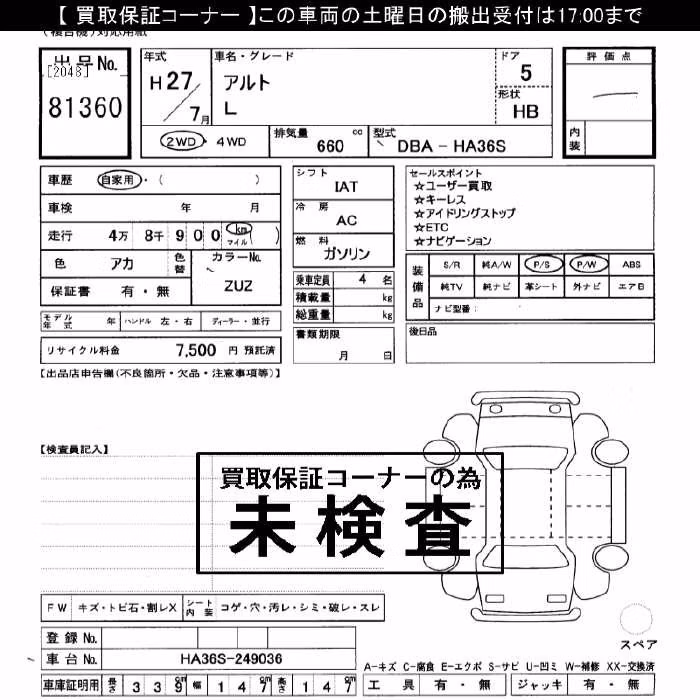 【 買取保証コーナー 】この車両の土曜日の搬出受付は17:00まで
(複合機)対応用紙
出品No.
[2048]
81360
年式
H27/7月
車名・グレード
アルト
L
ドア
5
形状
HB
評価点
内装
2WD・4WD
排気量
660 cc
型式
DBA - HA36S
車歴 自家用・( )
車検 年 月
走行 4万 8千 9 0 0 km マイル ( )
色 アカ 色替
カラーNo.
ZUZ
保証書 有・無
モデル年式 年 ハンドル 左・右 ディーラー・並行
リサイクル料金 7,500 円 預託済
シフト
IAT
冷房
AC
燃料
ガソリン
乗車定員 4 名
積載量 kg
総重量 kg
書類期限
月 日
セールスポイント
☆ユーザー買取
☆キーレス
☆アイドリングストップ
☆ETC
☆ナビゲーション
装備品
S/R 純A/W P/S P/W ABS
純TV 純ナビ 革シート 外ナビ エアB
ナビ型番:
後日品
【出品店申告欄(不良箇所・欠品・注意事項等)】
【検査員記入】
買取保証コーナーの為
未検査
FW キズ・トビ石・割レX シート内装 コゲ・穴・汚レ・シミ・破レ・スレ
登録No.
車台No. HA36S-249036
車庫証明用 長さ 3 3 9 幅 1 4 7 高さ 1 4 7
スペア
A-キズ C-腐食 E-エクボ S-サビ U-凹ミ W-補修 XX-交換済
工具 有・無 ジャッキ 有・無